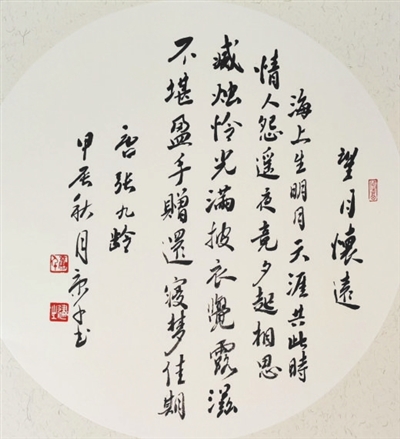 望月懷遠
海上生明月天涯共此時
情人怨遥夜竟夕起相思
滅烛怜光滿披衣覺露滋
不堪盈手贈還寝梦佳期
唐張九龄
甲辰秋月